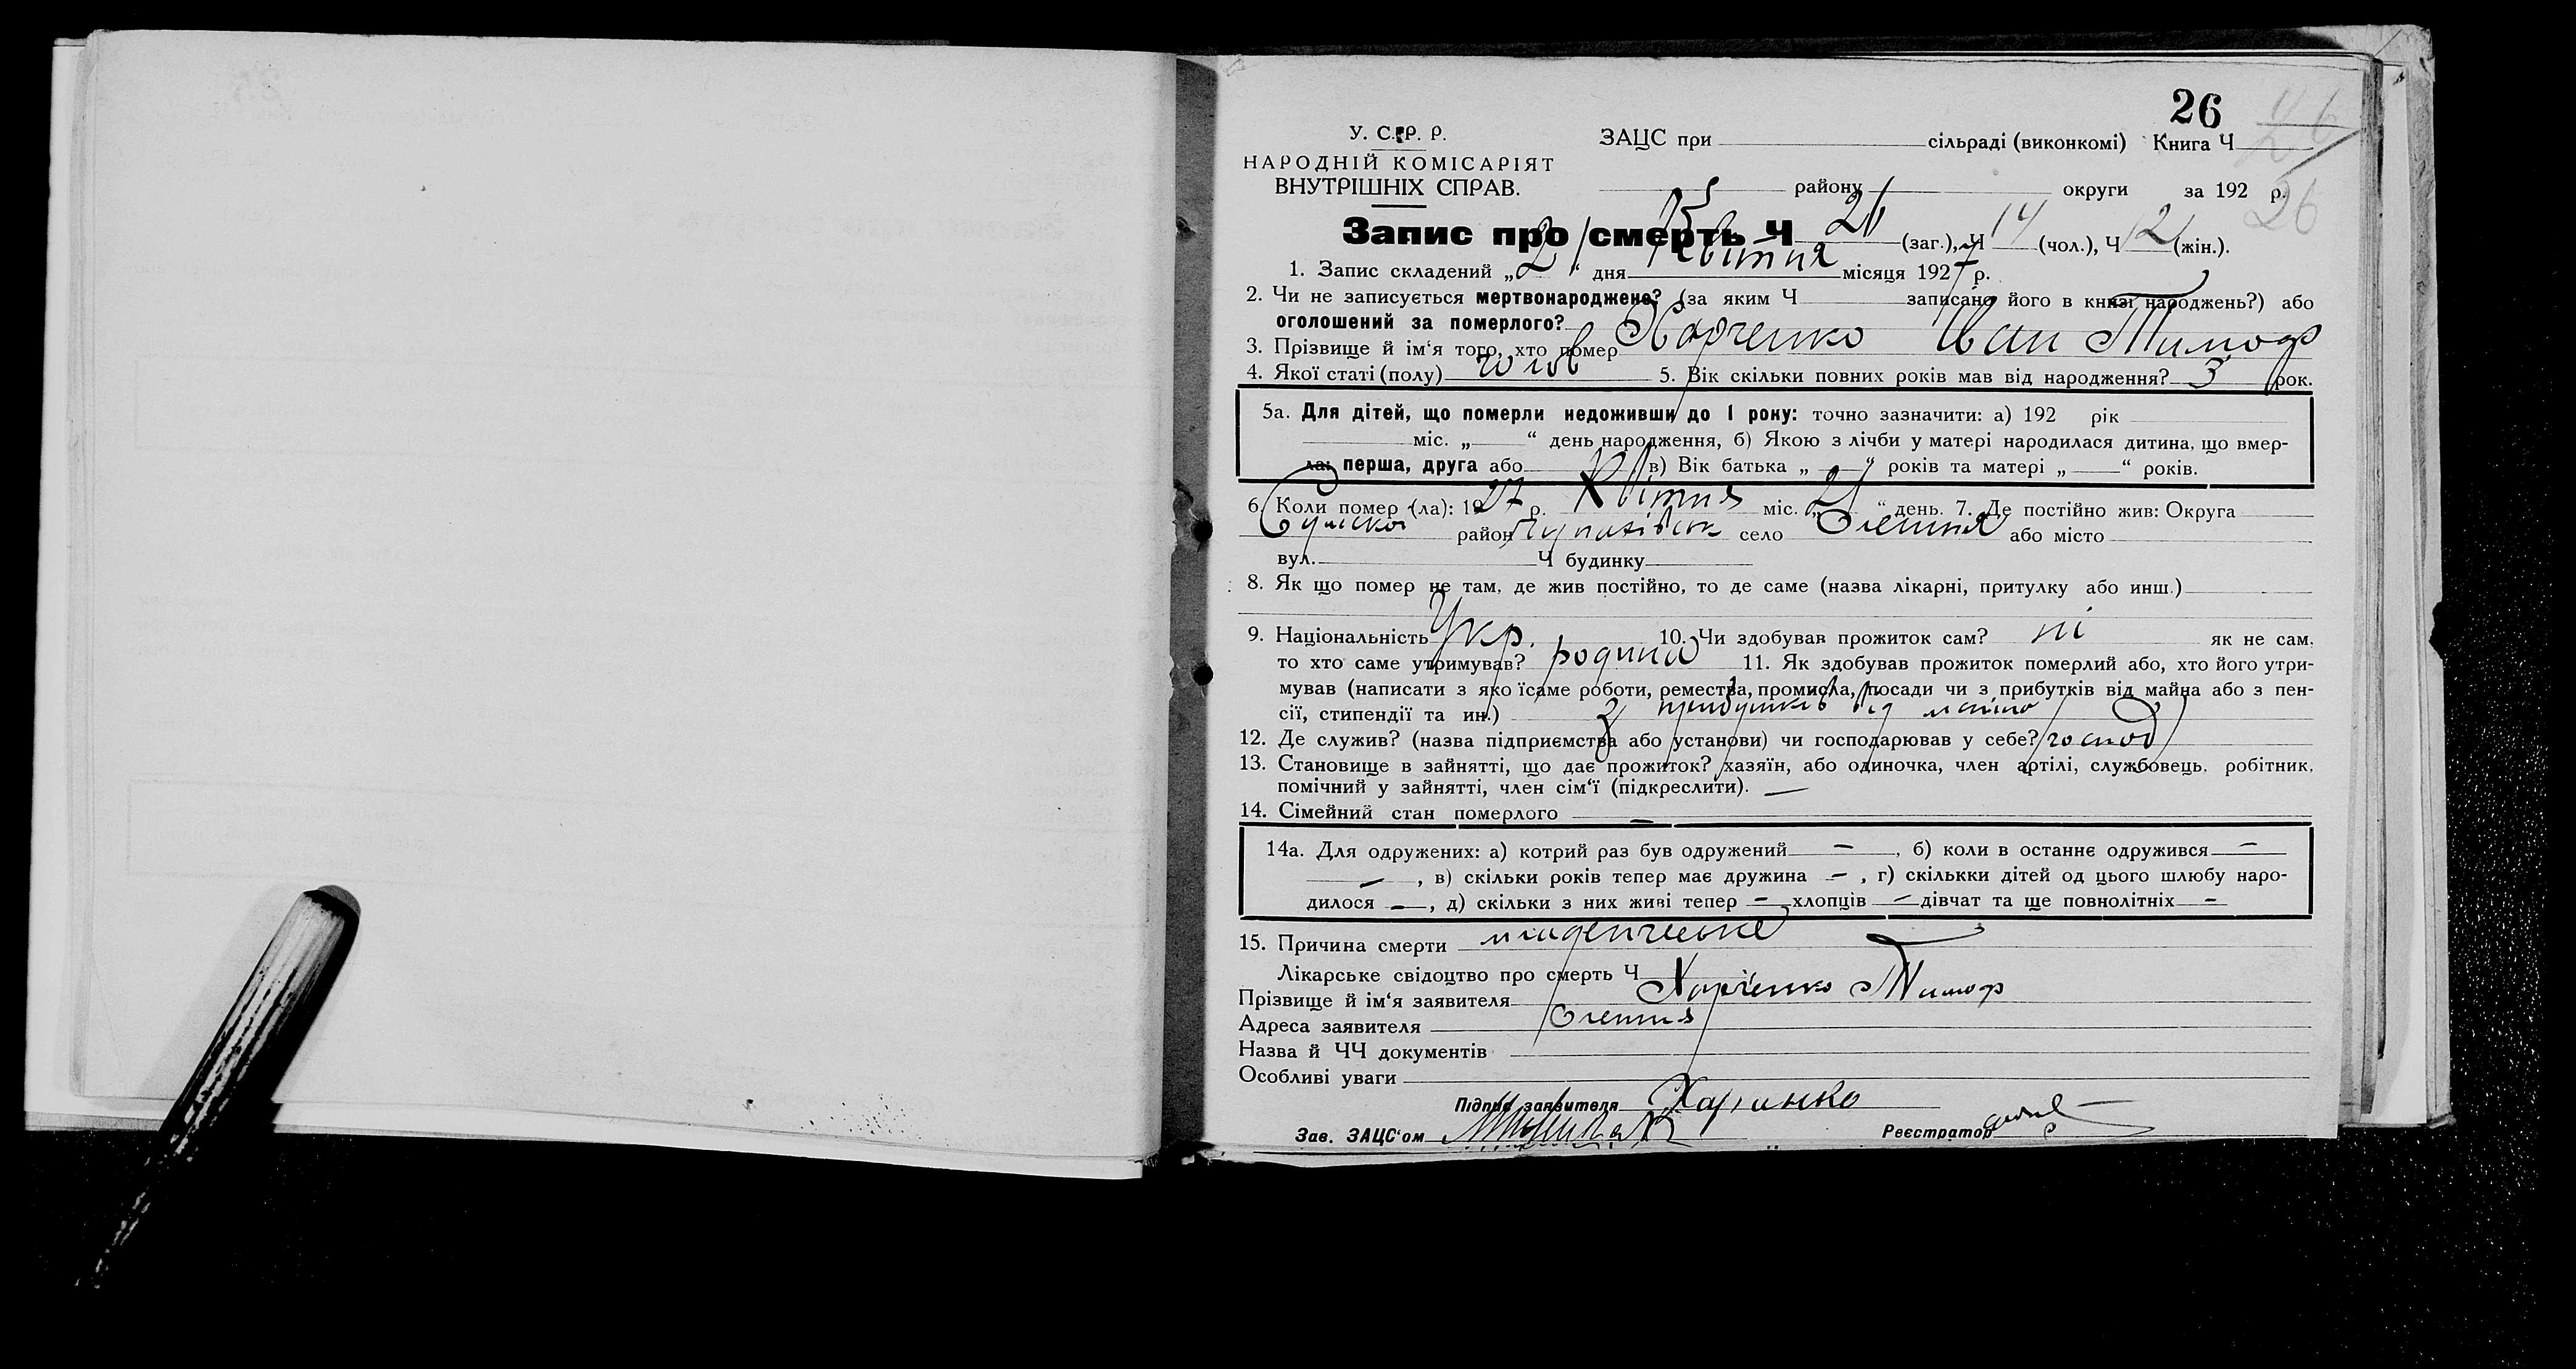 26
У. С. Р. Р.
ЗАЦС при сільраді (виконкомі) Книга Ч
НАРОДНІЙ КОМІСАРІЯТ
ВНУТРІШНІХ СПРАВ.
району округи за 192 р.
26
Запис про смерть Ч 26 (заг.), Ч 14 (чол.), Ч 12 (жін.).
1. Запис складений „21“ дня Квітня місяця 1927 р.
2. Чи не записується мертвонароджене? (за яким Ч записано його в книзі народжень?) або
оголошений за померлого?
3. Прізвище й ім'я того, хто помер Харченко Іван Тимоф
4. Якої статі (полу) чолов 5. Вік скільки повних років мав від народження? 3 рок.
5а. Для дітей, що померли недоживши до 1 року: точно зазначити: а) 192 рік
міс. „ “ день народження, б) Якою з лічби у матері народилася дитина, що вмер-
ла: перша, друга або в) Вік батька „ “ років та матері „ “ років.
6. Коли помер (ла): 1927 р. Квітня міс. „21“ день. 7. Де постійно жив: Округа
Сумська район Чупахівськ село Олешня або місто
вул. Ч будинку
8. Як що помер не там, де жив постійно, то де саме (назва лікарні, притулку або инш.)
9. Національність Укр. 10. Чи здобував прожиток сам? ні як не сам,
то хто саме утримував? родина 11. Як здобував прожиток померлий або, хто його утри-
мував (написати з яко їсаме роботи, ремества, промисла, посади чи з прибутків від майна або з пен-
сії, стипендії та ин.) З прибутків від майна
12. Де служив? (назва підприємства або установи) чи господарював у себе? господ
13. Становище в зайнятті, що дає прожиток? хазяїн, або одиночка, член артілі, службовець, робітник,
помічний у зайнятті, член сім'ї (підкреслити). —
14. Сімейний стан померлого —
14а. Для одружених: а) котрий раз був одружений — , б) коли в останнє одружився —
— , в) скільки років тепер має дружина — , г) скількки дітей од цього шлюбу наро-
дилося — , д) скільки з них живі тепер — хлопців — дівчат та ще повнолітніх —
15. Причина смерти младенческе
Лікарське свідоцтво про смерть Ч
Прізвище й ім'я заявителя Харченко Тимоф
Адреса заявителя Олешня
Назва й ЧЧ документів
Особливі уваги
Підпис заявителя Харченко
Зав. ЗАЦС'ом Реєстратор